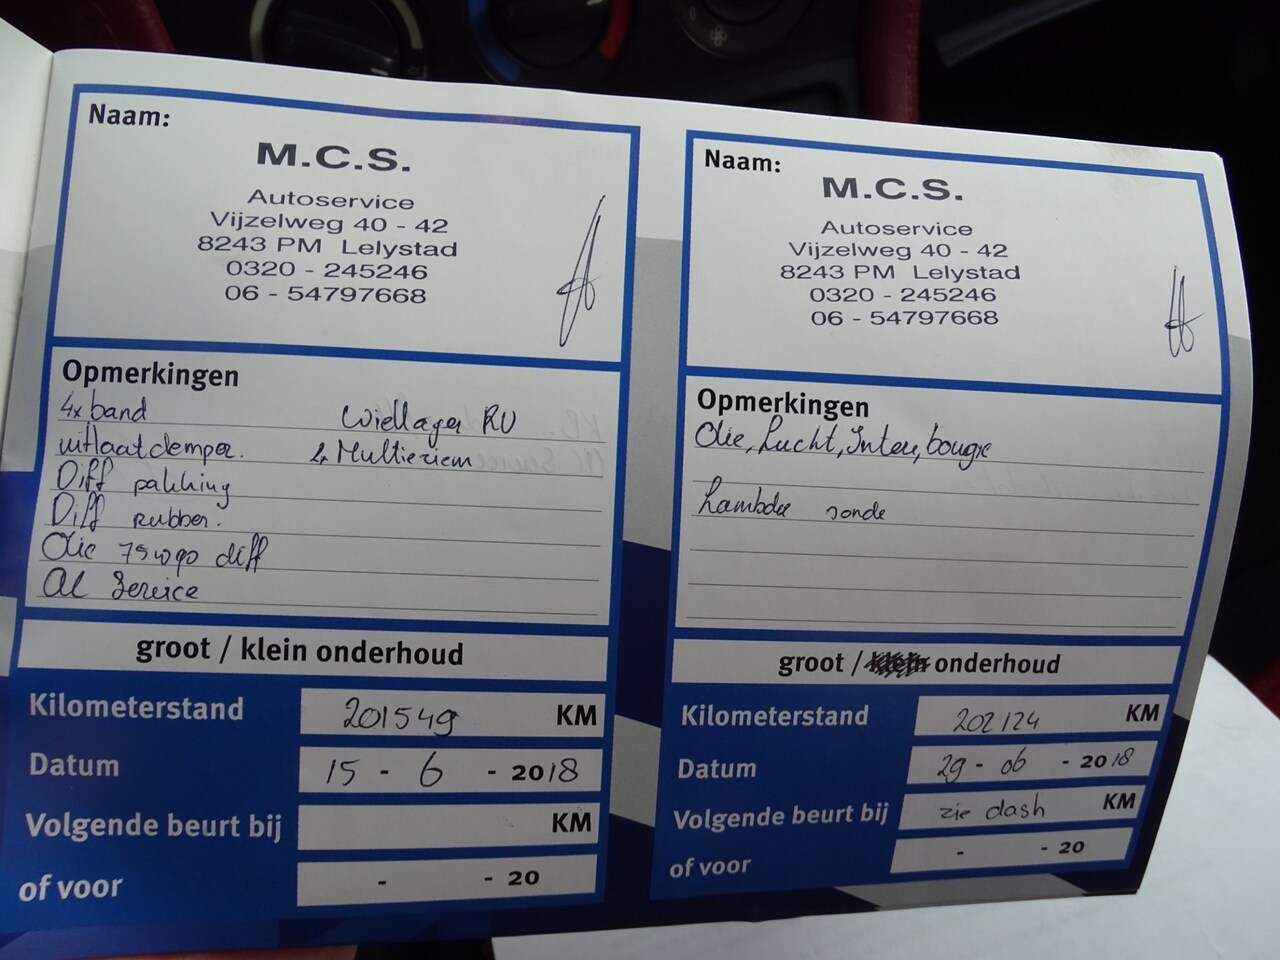 Naam:
M.C.S.
Autoservice
Vijzelweg 40 - 42
8243 PM Lelystad
0320 - 245246
06 - 54797668
Opmerkingen
4x band Wiellager RV
uitlaatdemper. & Multieriem
Diff pakking
Diff rubber.
Olie 75w90 diff
AC Service
groot / klein onderhoud
Kilometerstand 201549 KM
Datum 15 - 6 - 2018
Volgende beurt bij KM
of voor - - 20
Naam:
M.C.S.
Autoservice
Vijzelweg 40 - 42
8243 PM Lelystad
0320 - 245246
06 - 54797668
Opmerkingen
Olie, Lucht, Interieu, bougie
Lambda sonde
groot / klein onderhoud
Kilometerstand 202124 KM
Datum 29 - 06 - 2018
Volgende beurt bij zie dash KM
of voor - - 20